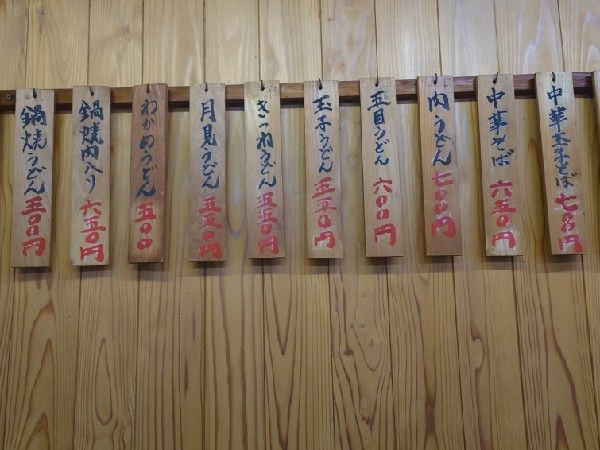 中華玉子そば 七〇〇円
中華そば 六五〇円
肉うどん 七〇〇円
五目うどん 六〇〇円
玉子うどん 五五〇円
きつねうどん 五五〇円
月見うどん 五五〇円
わかめうどん 五〇〇
鍋焼肉入り 六五〇円
鍋焼うどん 五〇〇円